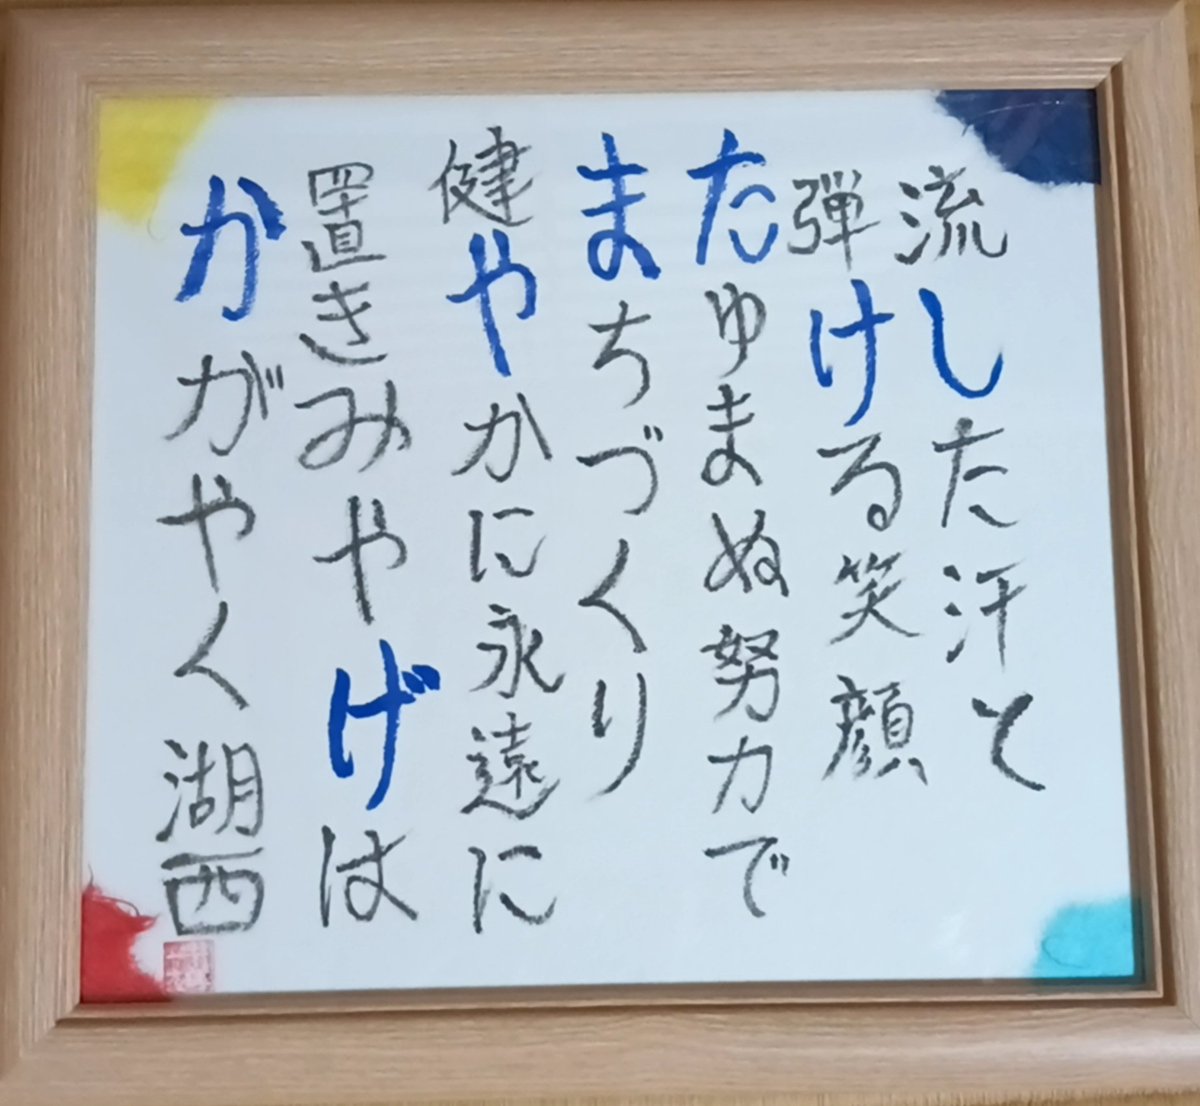 流した汗と
弾ける笑顔
たゆまぬ努力で
まちづくり
健やかに永遠に
置きみやげは
かがやく湖西